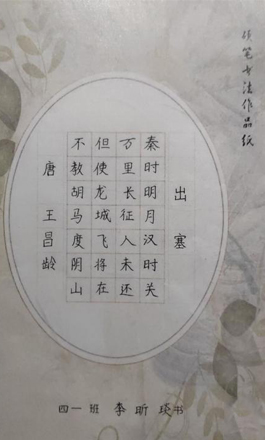 硬笔书法作品纸
出塞
秦时明月汉时关
万里长征人未还
但使龙城飞将在
不教胡马度阴山
唐 王昌龄
四一班 李昕琰书